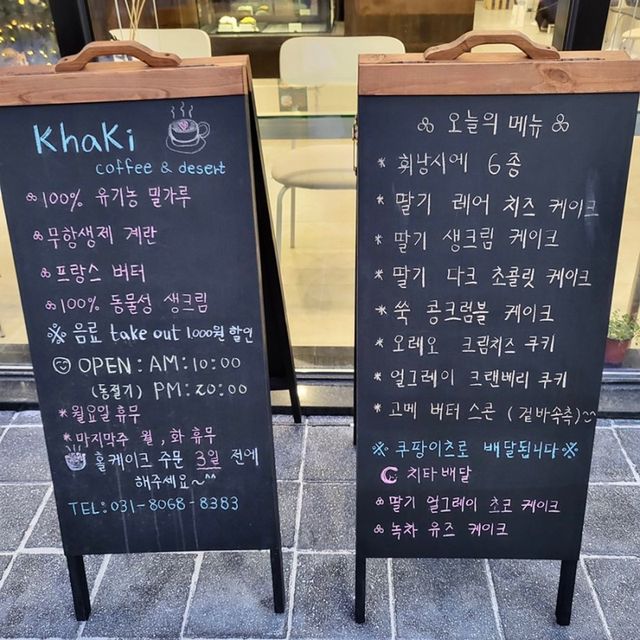 Khaki
coffee & desert
100% 유기농 밀가루
무항생제 계란
프랑스 버터
100% 동물성 생크림
※ 음료 take out 1000원 할인
OPEN: AM: 10:00
(동절기) PM: 20:00
* 월요일 휴무
* 마지막주 월, 화 휴무
홀케이크 주문 3일 전에
해주세요~^^
TEL: 031-8068-8383
오늘의 메뉴
* 휘낭시에 6종
* 딸기 레어 치즈 케이크
* 딸기 생크림 케이크
* 딸기 다크 초콜릿 케이크
* 쑥 콩크럼블 케이크
* 오레오 크림치즈 쿠키
* 얼그레이 크랜베리 쿠키
* 고메 버터 스콘 (겉바속촉)
※ 쿠팡이츠로 배달됩니다 ※
치타배달
딸기 얼그레이 초코 케이크
녹차 유즈 케이크